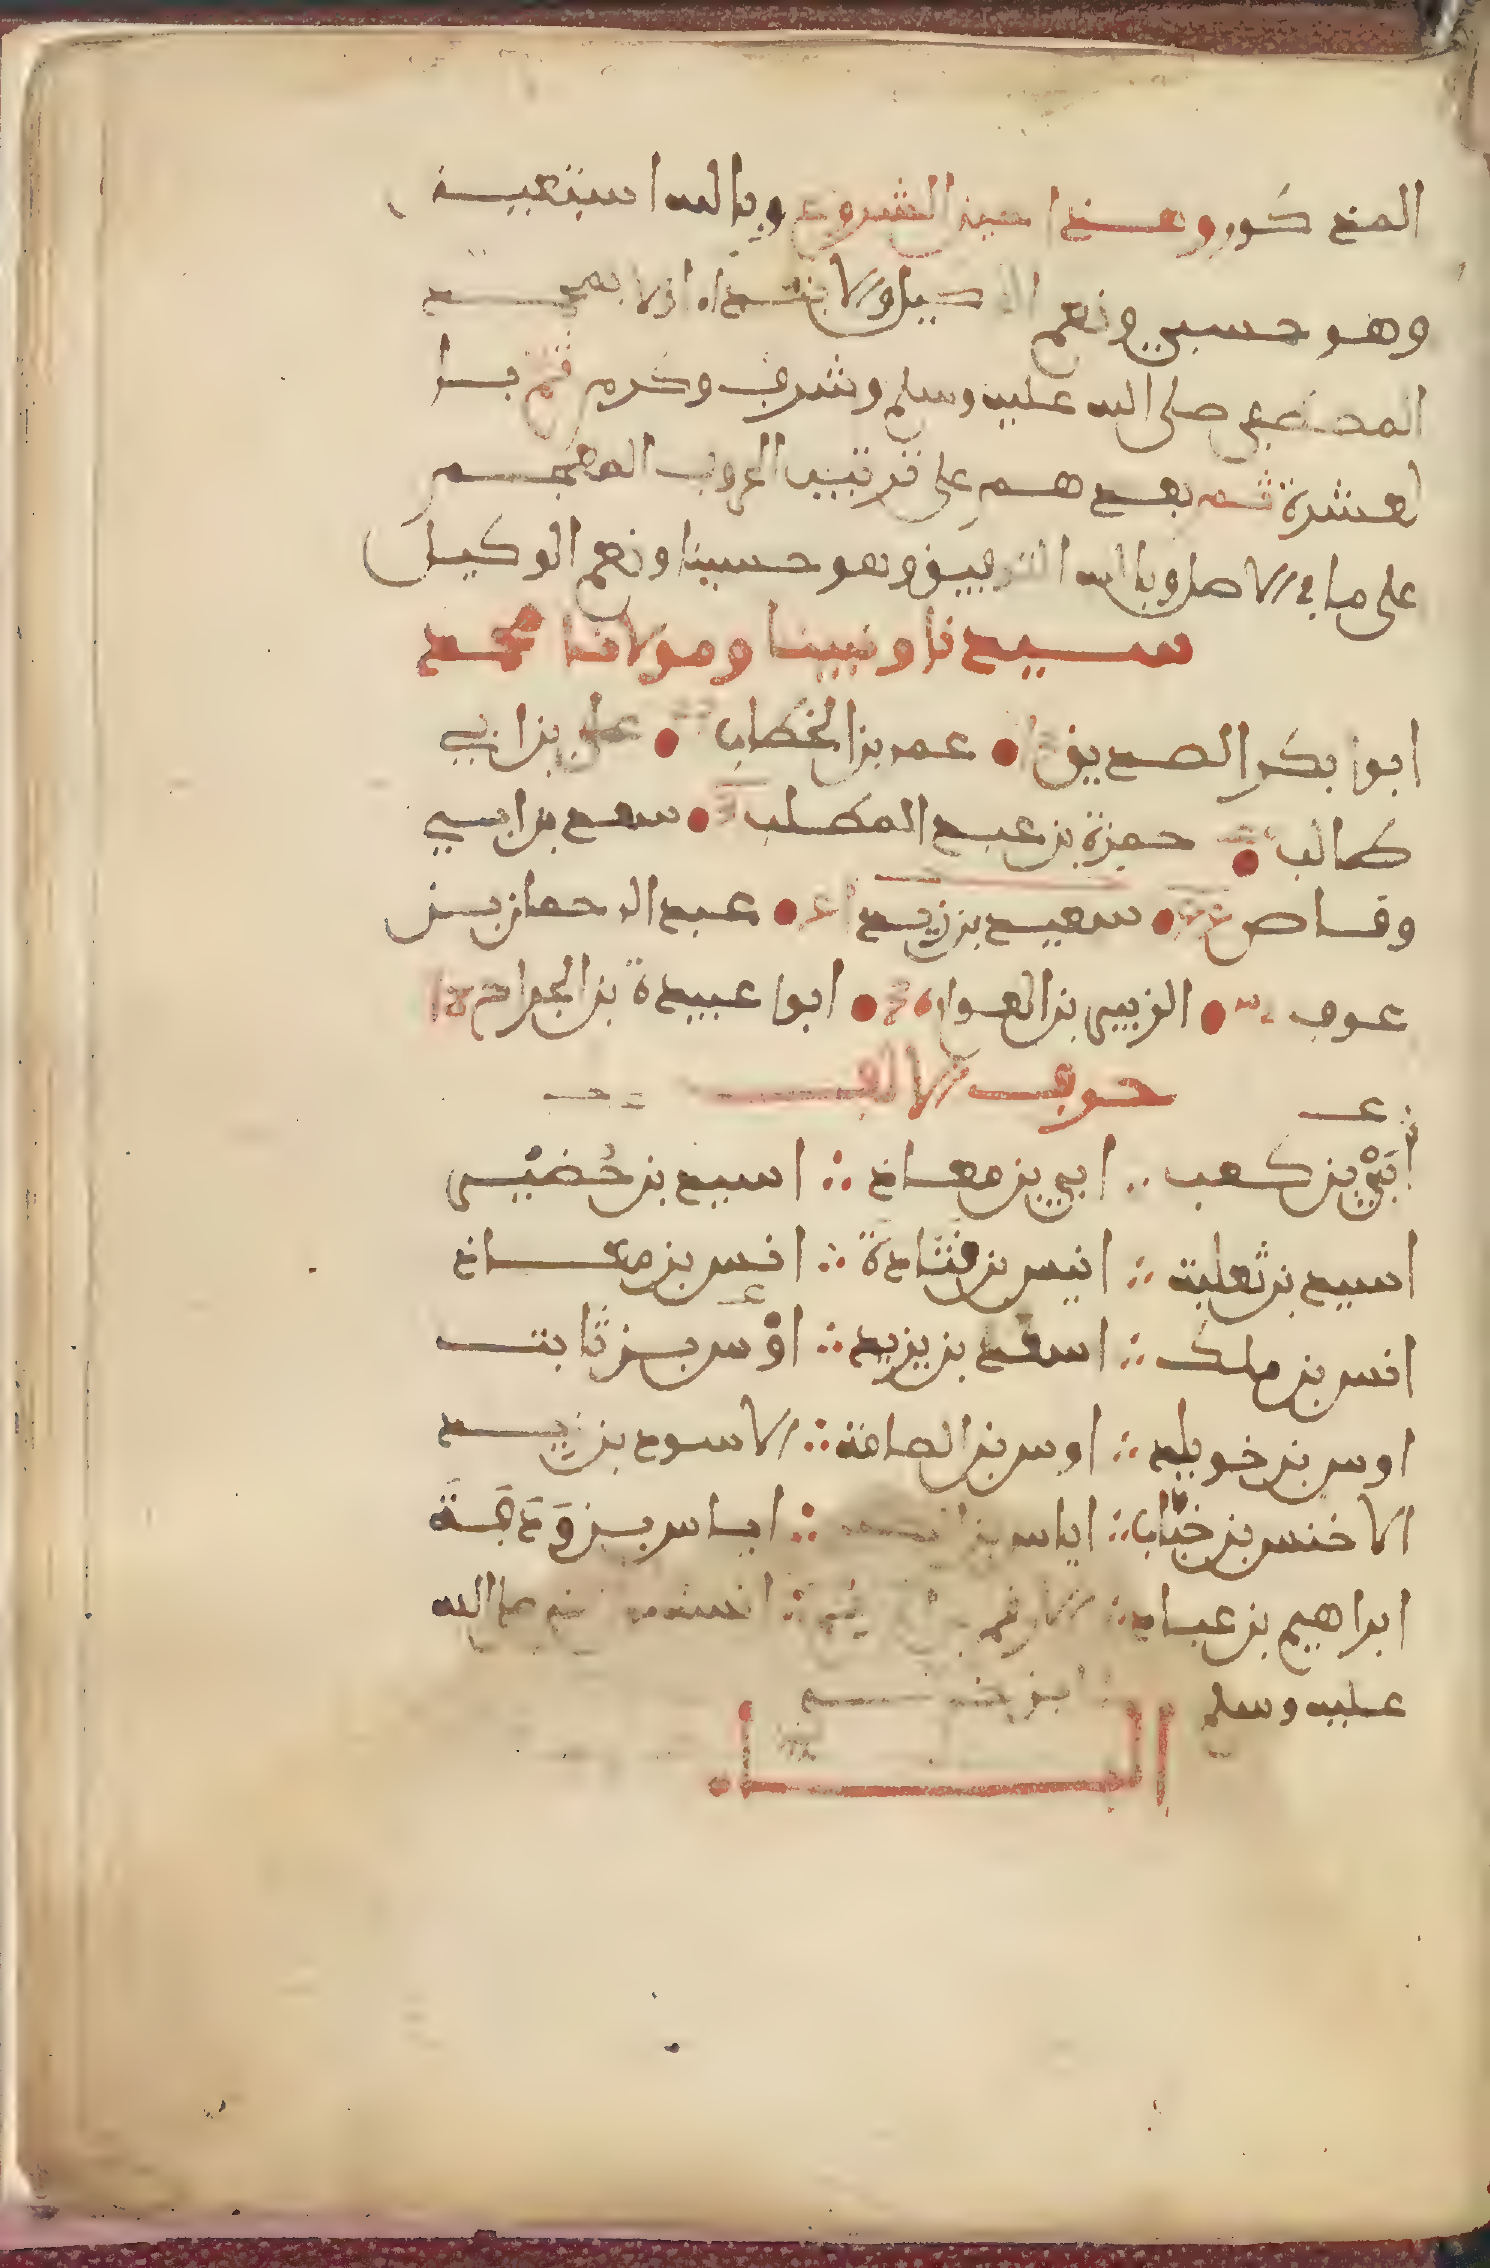 المذكور وهذا حين الشروع وبالله استعين
وهو حسبي ونعم الوكيل والابتداء اولا بمحمد
المصطفى صلى الله عليه وسلم وشرف وكرم ثم با
لعشرة ثم بعدهم على ترتيب الحروف المعجم
على ما في الاصل وبالله التوفيق وهو حسبنا ونعم الوكيل
سيدنا ونبينا ومولانا محمد
ابوا بكر الصديق عمر بن الخطاب علي بن ابي
طالب حمزة بن عبد المطلب سعد بن ابي
وقاص سعيد بن زيد عبد الرحمان بن
عوف الزبير بن العوام ابوا عبيدة بن الجراح
حرف الالف
أُبَيّ بن كعب ابي بن معاذ اسيد بن حُضَيْر
اسيد بن ثعلبة انيس بن قتادة انس بن معاذ
انس بن ملك اسعد بن يزيد اوْس بن ثابت
اوس بن خويلد اوس بن الصامت الاسود بن زيد
الاخنس بن خبّاب اياس بن اياس بن وَدَقَةَ
ابراهيم بن عباد الارقم بن انسة صلى الله
عليه وسلم